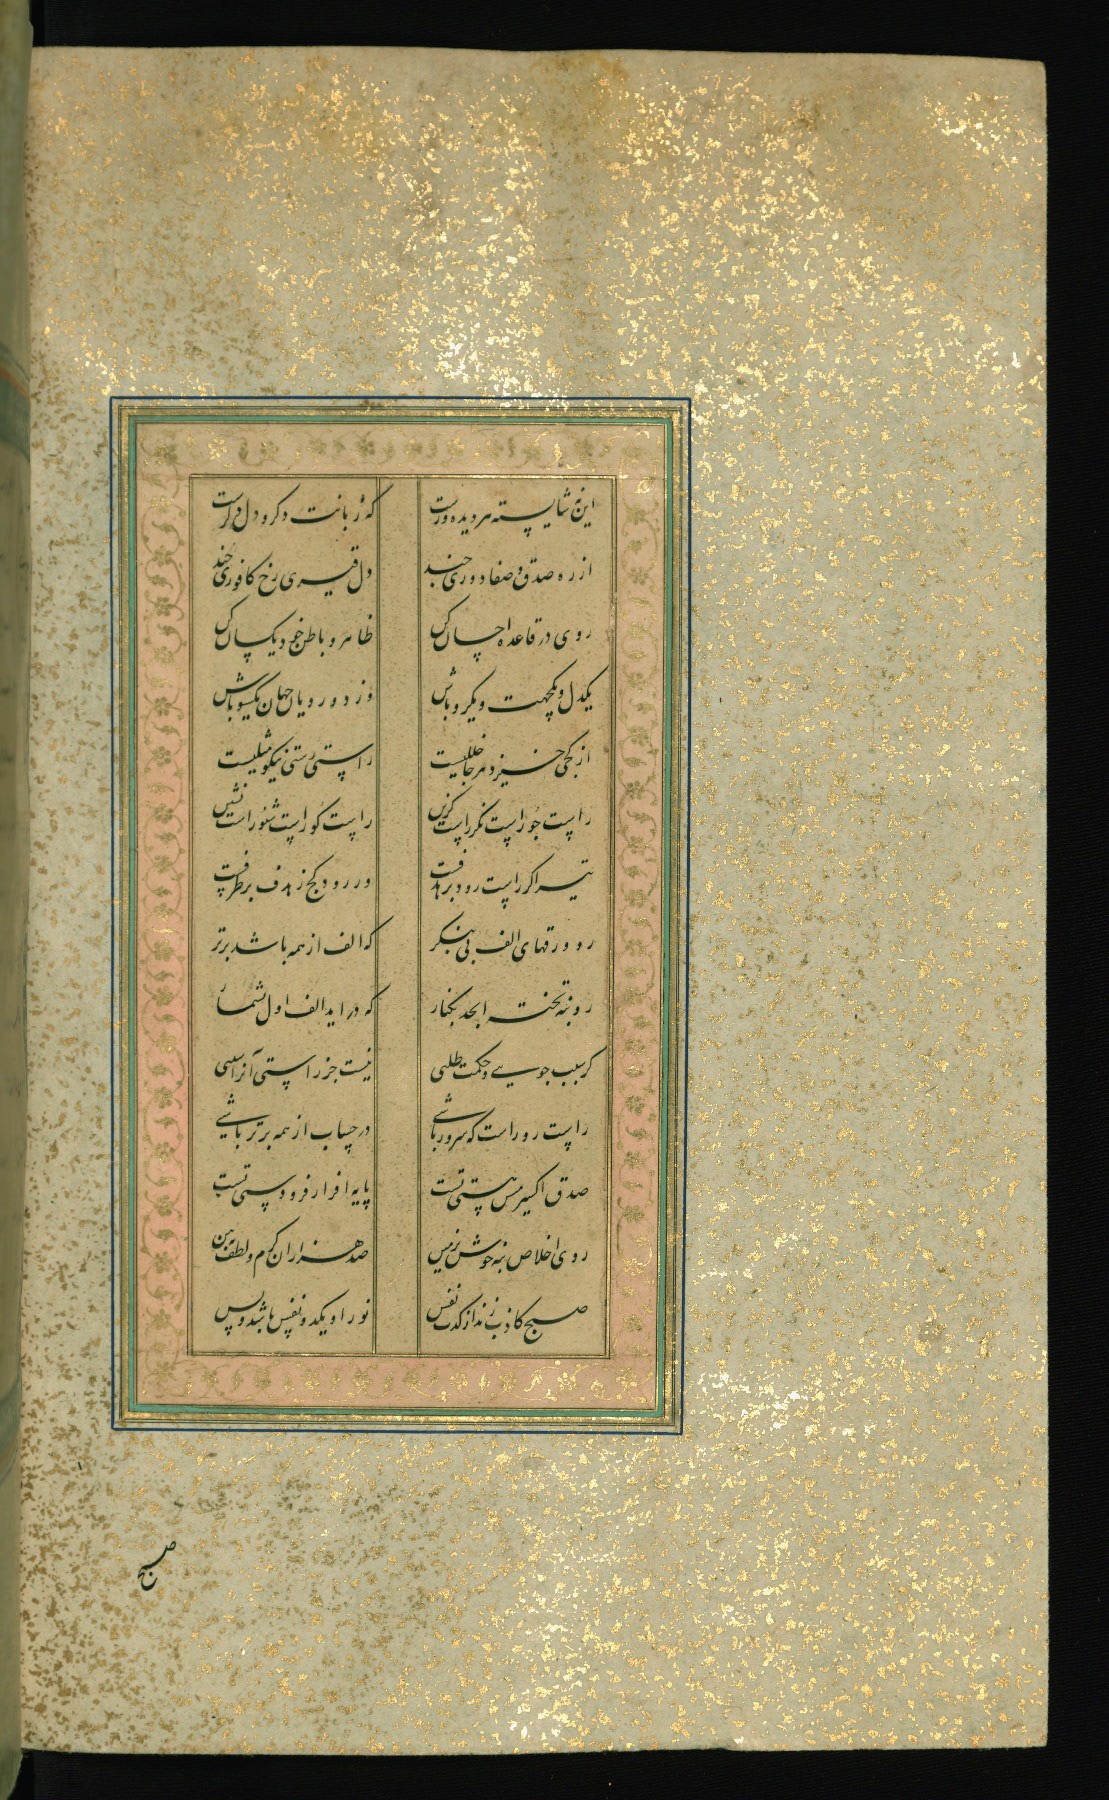 این نه شایسته هر دیده ورست
که زبانت دکر و دل دکرست
از ره صدق و صفا دوری چند
دل قیری رخ کافوری چند
روی در قاعده احسان کن
ظاهر و باطن خود یکسان کن
یکدل و یکجهت و یکرو باش
وز دورویان جهان یکسو باش
از کجی خیزد هر جا خللیست
راستی رستی نیکو مثلیست
راست جو راست نکر راست کزین
راست کو راست شنو راست نشین
تیر اکر راست رود بر هدفست
ور رود کج ز هدف بر طرفست
رو ورقهای الف بی بنکر
که الف از همه باشد برتر
رو بنه تخته ابجد بکنار
که در اید الف اول بشمار
کر سبب جویی و حکمت طلبی
نیست جز راستی آنرا سببی
راست رو راست که سرور باشی
در حساب از همه برتر باشی
صدق اکسیر مس هستی تست
پایه افراز فرودستی تست
روی اخلاص بنه خوش بزمین
صد هزاران کرم و لطف ببین
صبح کاذب زند از کذب نفس
نور او یکدو نفس باشد و بس
صبح